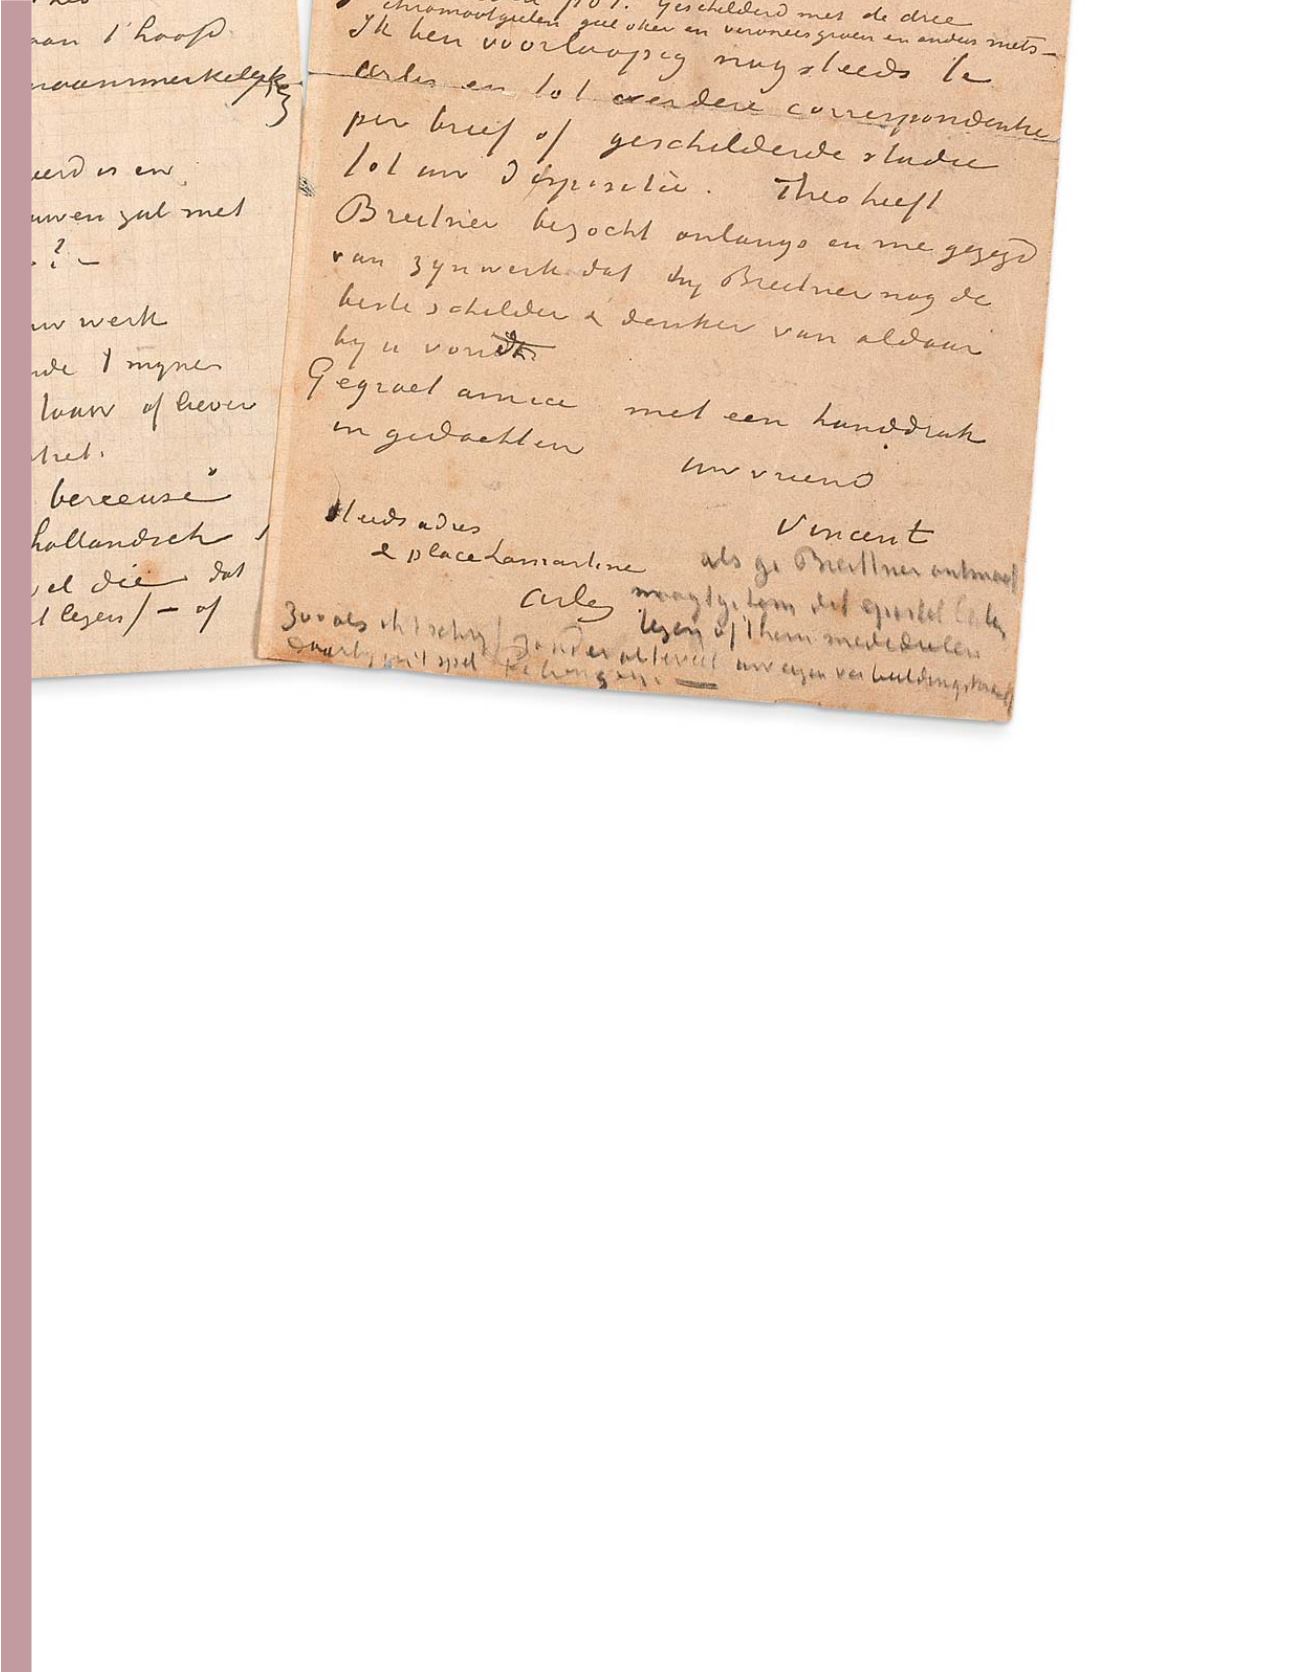 aan 't hoofd
eerd is en
uwen zal met
? –
uw werk
nde 't mijner
of liever
het.
berceuse
hollandsch
wel die dat
't lezen) – of
pot. Geschilderd met de drie
chromaatgeelen geel oker en veroneesgroen en anders niets –
Ik ben voorloopig nog steeds te
Arles en tot verdere correspondentie
per brief of geschilderde studie
tot uw dispositie. Theo heeft
Breitner bezocht onlangs en me gezegd
van zijn werk dat hij Breitner nog de
beste schilder & denker van aldaar
bij u vond
Gegroet amice met een handdruk
in gedachten
uw vriend
Vincent
Steeds adres
2 place Lamartine
Arles
als ge Breitner ontmoet
moogt ge hem dit epistel laten
lezen of 't hem mededeelen
zooals ik 't schrijf zonder al te veel uw eigen verbeeldingskracht
daarbij in 't spel te brengen. —